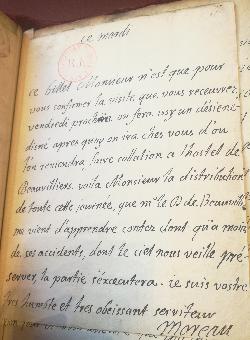 ce mardi
ce billet Monsieur n'est que pour
vous confirmer la visite, que vous receuvrez
vendredi prochain, on fera icy un désieu-
diné apres quoy on ira chez vous d'ou
l'on reviendra faire collation a l'hostel de
Beauvilliers. voila Monsieur la distribution
de toute cette journée, que Mr le D. de Beauvilliers
me vient d'apprendre conter dont qu'a moins
de ses accidents, dont le ciel nous veille pré-
server, la partie s'éxecutera. ie suis vostre
tres humble et tres obeissant serviteur
Moreau